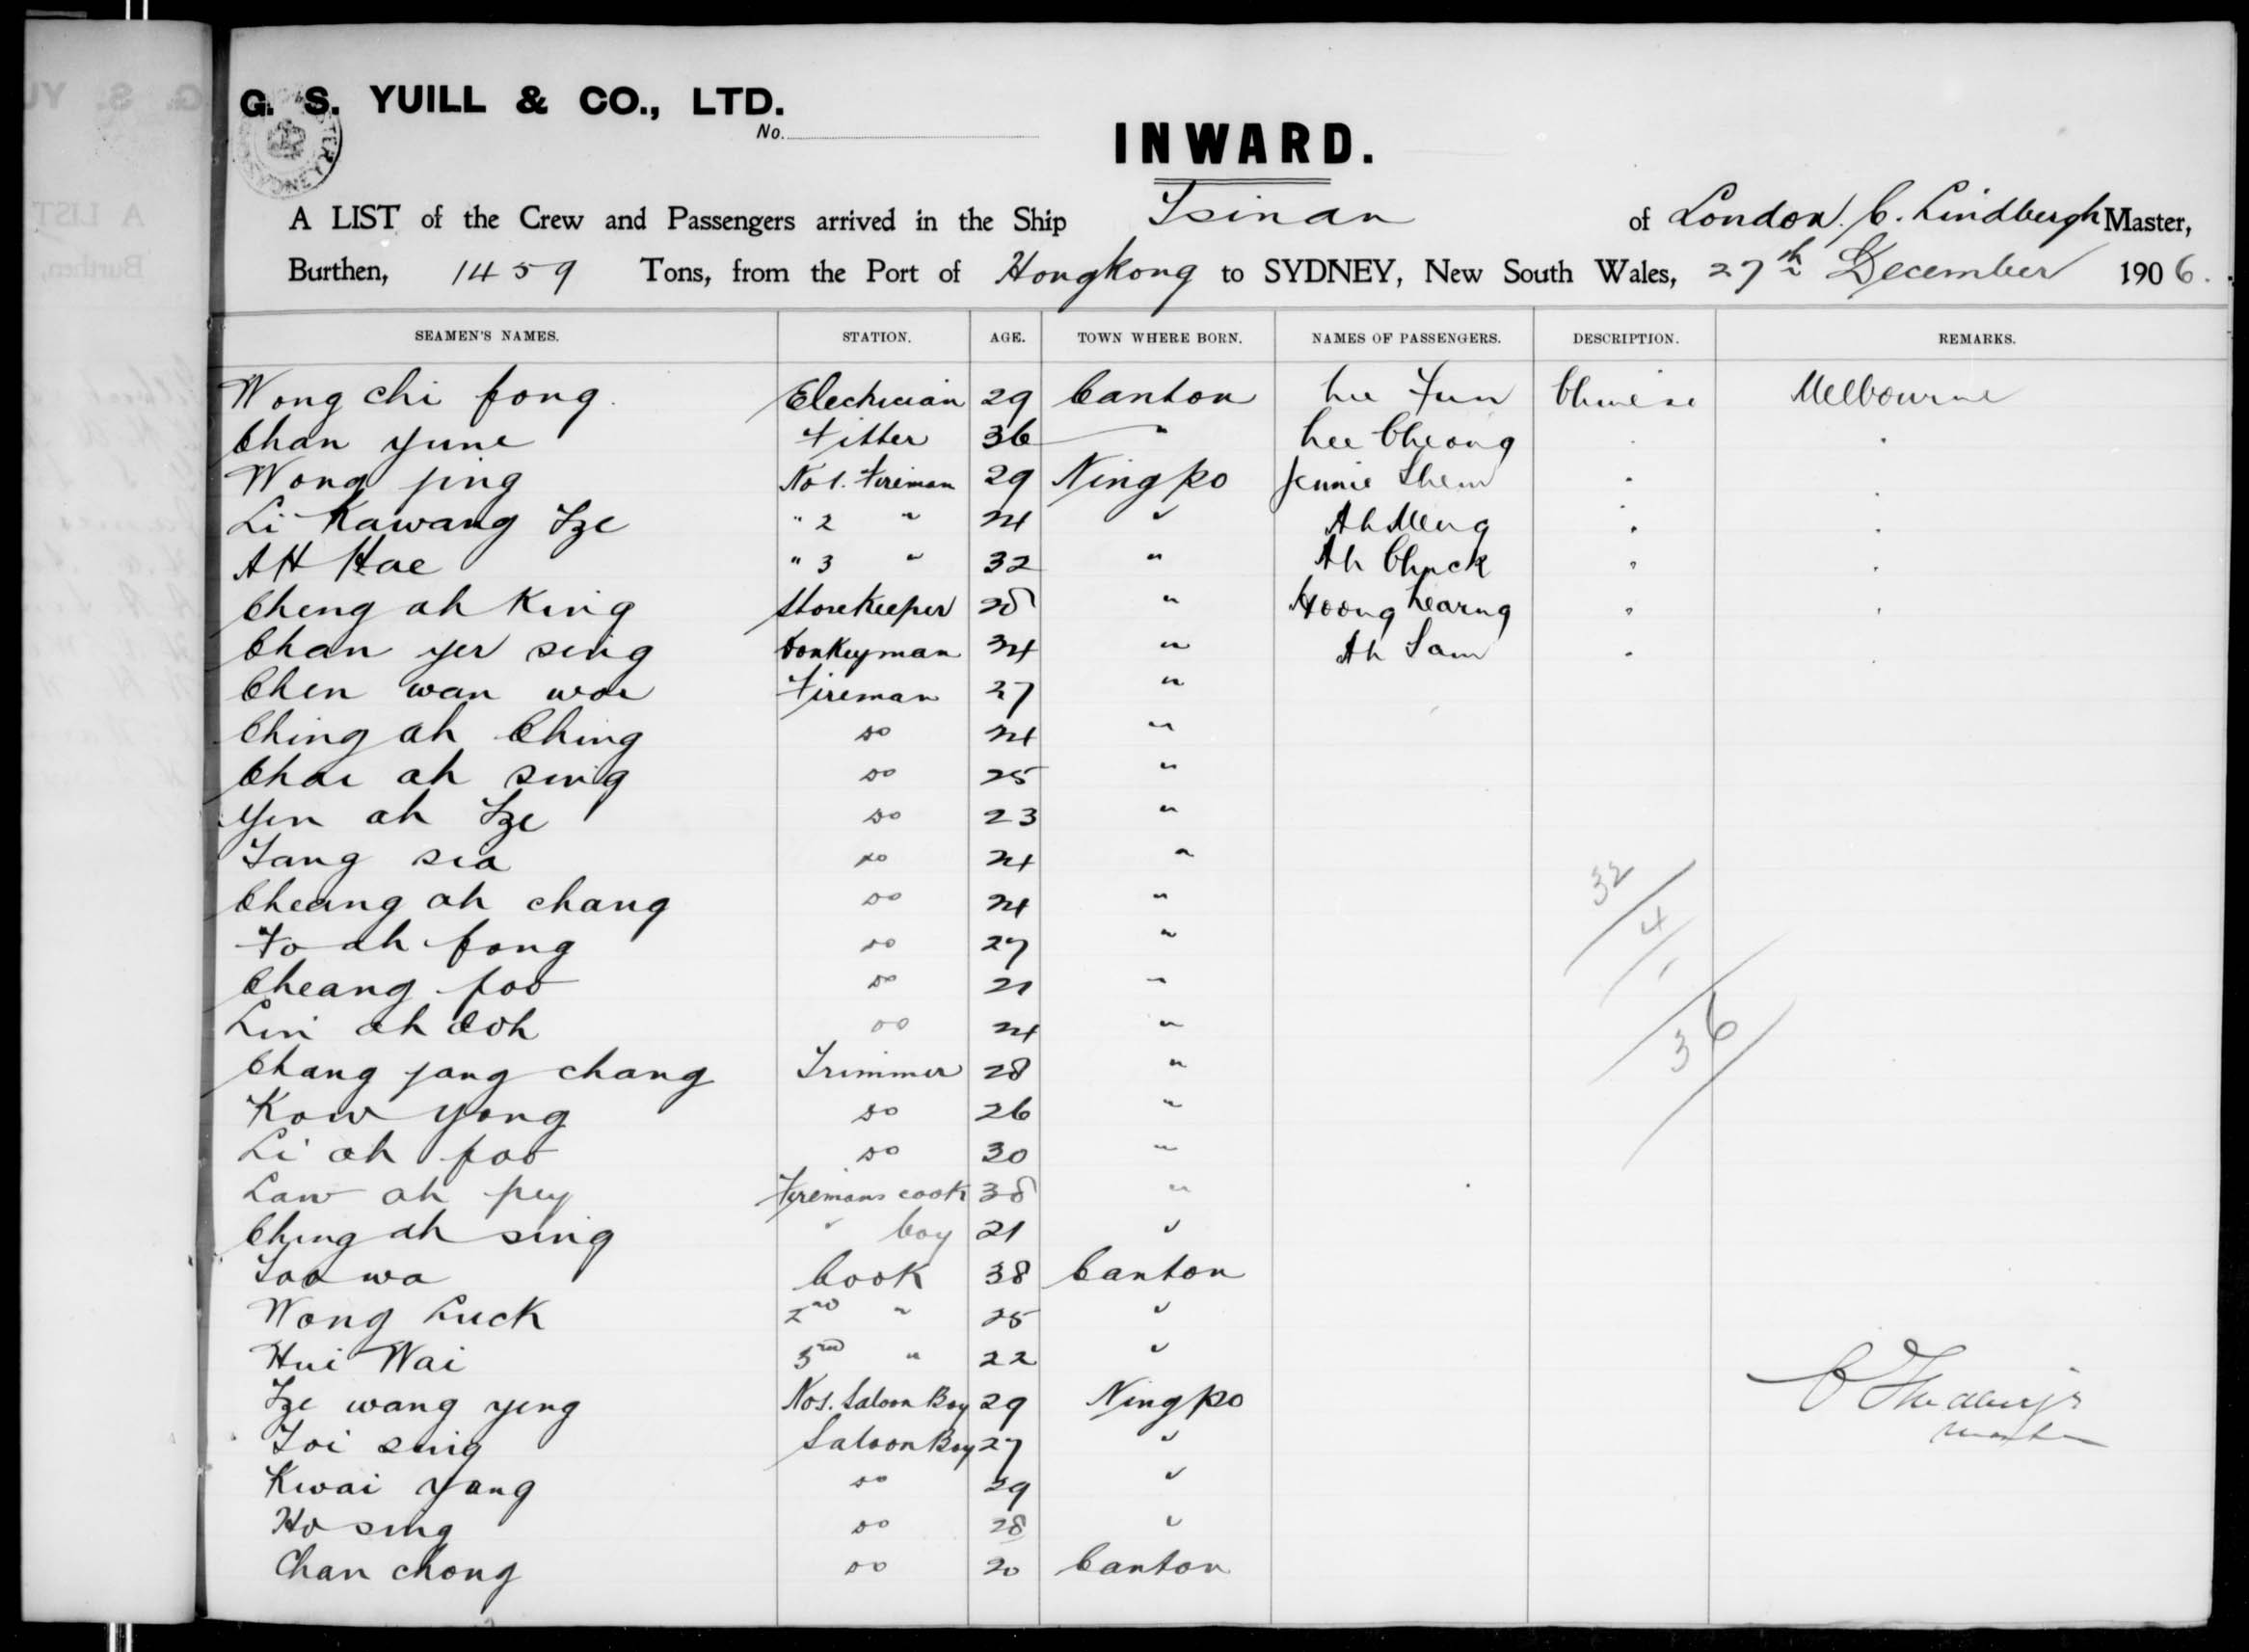 G. S. YUILL & CO., LTD.
No.
INWARD.
A LIST of the Crew and Passengers arrived in the Ship Tsinan of London, C. Lindbergh Master,
Burthen, 1459 Tons, from the Port of Hongkong to SYDNEY, New South Wales, 27th December 1906.
SEAMEN'S NAMES. STATION. AGE. TOWN WHERE BORN. NAMES OF PASSENGERS. DESCRIPTION. REMARKS.
Wong chi fong. Electrician 29 Canton Lee Fun Chinese Melbourne
Chan yune Fitter 36 " Lee Cheong " "
Wong jing No 1. Fireman 29 Ningpo Jennie Shem " "
Li Kawang Tze " 2 " 24 " Ah Meng " "
AH Hae " 3 " 32 " Ah Chuck " "
Cheng ah King Storekeeper 28 " Hoong Learng " "
Chan yer sing Donkeyman 34 " Ah Sam " "
Chen wan woe Fireman 27 "
Ching ah Ching do 24 "
Chai ah sing do 25 "
Yen ah Tze do 23 "
Tang sia do 24 "
Cheang ah chang do 24 "
Fo ah fong do 27 "
Cheang foo do 21 "
Lin ah doh do 24 "
Chang jang chang Trimmer 28 "
Kow yong do 26 "
Li ah foo do 30 "
Law ah pey Firemans cook 38 "
Ching ah sing " boy 21 "
Tao wa Cook 38 Canton
Wong Luck 2nd " 25 "
Hui Wai 3rd " 22 "
Tze wang yeng No 1. Saloon Boy 29 Ningpo
Toi sing Saloon Boy 27 "
Kwai yang do 29 "
Ho sing do 28 "
Chan chong do 20 Canton
32
4
36
C Lindbergh
master